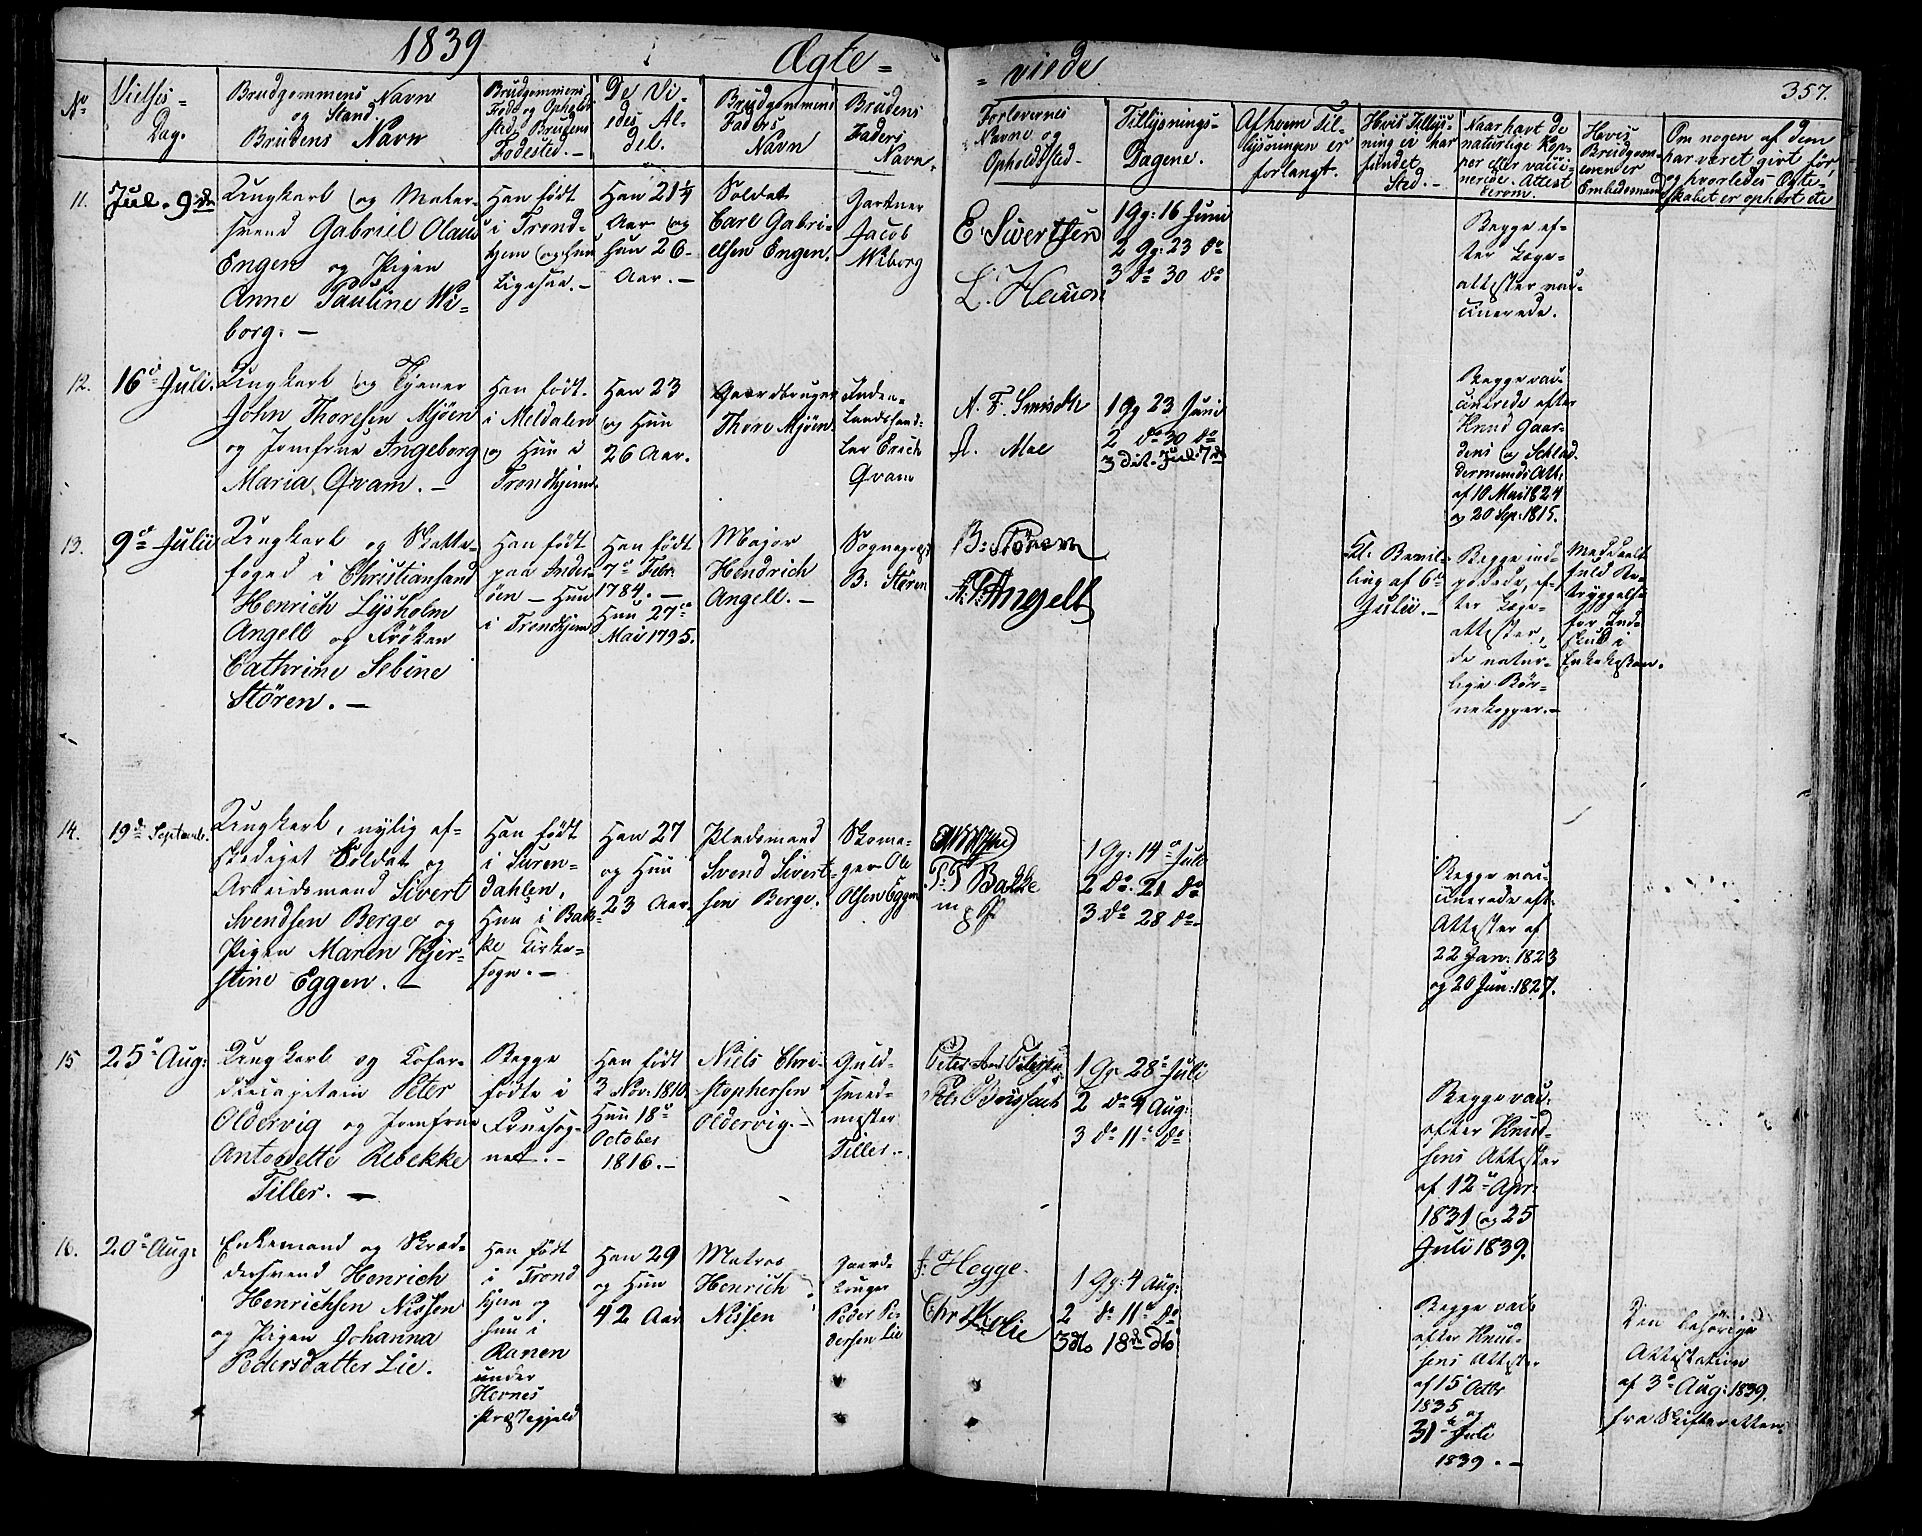 1839
Ægte= =viede
357.
No
Vielses-
Dag.
Brudgommens Navn
og Stand.
Brudens Navn
Brudgommens
Føde og Opholds
Sted, Brudens
Fødested. —
De Vi-
edes Al-
der.
Brudgommens
Faders
Navn
Brudens
Faders
Navn.
Forlovernes
Navne og
Opholdssted.
Tillysnings-
Dagene.
Af hvem Til-
lysningen er
forlangt.
Hvis Tillys-
ning ei har
fundet
Sted. —
Naar havt de
naturlige Kop-
per eller vacci-
nerede. Attest
derom.
Hvis
Brudgom-
men er
Embedsmand
Om nogen af dem
har været givt før,
og hvorledes Ægte-
skabet er ophørt
11.
Jul. 9de
Ungkarl og Mater-
svend Gabriel Olaus
Engen og Pigen
Anne Pauline Wi-
borg. —
Han født
i Trond-
hjem og hun
ligesaa. —
Han 21¼
Aar og
hun 26
Aar. —
Soldat
Carl Gabri-
elsen Engen.
Gartner
Jacob
Wiborg
E. Sivertsen
L.
1 Gg: 16 Juni
2 Gg: 23 do
3 do 30 do
Begge ef-
ter Læge-
attester vac-
cinerede.
12.
16de Juli.
Ungkarl og Tjener
John Thoresen Mjøen
og Jomfrue Ingeborg
Maria Qvam. —
Han født
i Meldalen
og Hun i
Trondhjem
Han 23
og Hun
26 Aar.
Gaardbruger
Thore Mjøen
Inden-
landshand-
ler Erich
Qvam
A. F. Smidth
A. Moe
1 Gg 23 Juni
2 do 30 do
3 dit. Jul. 7de
Begge vac-
cinerede efter
Knud Gaar-
dens og
Att:
af 10 Mai 1824
og 20 Sep. 1815.
13.
9de Julii
Ungkarl og Skatte-
foged i Christiansand
Henrich Lysholm
Angell og Frøken
Cathrine Sebine
Stören. —
Han født
paa Inder-
øen — Hun
i Trondhjem
Han født
7de Febr.
1784. —
Hun 27de
Mai 1795.
Major
Hendrich
Angell. —
Sognepræst
B. Stören
B. Stören
Angell
Kl. Bevil-
ling af 6te
Julii. —
Begge ind-
podede, ef-
ter Læge-
attester,
de natur-
lige Bør-
nekopper. —
Meddeelt
fuld Be-
tryggelse
for Ind-
skud i
Enkekassen.
14.
19de Septemb.
Ungkarl, nylig af-
skediget Soldat og
Arbeidsmand Sivert
Svendsen Berge og
Pigen Maren Kjer-
stine Eggen. —
Han født
i Suren-
dahlen,
Hun i Bak-
ke Kirke-
sogn. —
Han 27
og Hun
23 Aar.
Pladsmand
Svend Sivert-
sen Berge.
Skoma-
ger Ole
Olsen Eggen
Bakke
m. p. P.
1 Gg: 14de Juli
2 do. 21 do
3 do 28 do
Begge vac-
cinerede eft.
Attester af
22 Jan: 1823
og 20 Jun: 1827.
15
25de Aug:
Ungkarl og Cofar-
diecapitain Peter
Oldervig og Jomfrue
Antonette Rebekke
Tiller. —
Begge
fødte i
Fruesog-
net. —
Han født
2 Nov: 1810
Hun 18de
October
1816. —
Niels Chri-
stophersen
Oldervig. —
Guld-
smed-
mester
Tiller. —
1 Gg 28de Juli
2 do 4 Aug:
3 do 11te do
Begge vac.
efter Knud-
sens Attester
af 12te Apr:
1831 og 25
Juli 1839.
16.
20de Aug:
Enkemand og Skræd-
dersvend Henrich
Henrichsen Nissen
og Pigen Johanna
Pedersdatter Lie.
Han født
i Trond
hjem og
hun i
Ranen
under
Hernes
Præstegjeld
Han 29
og Hun
42 Aar
Matros
Henrich
Nissen
Gaard-
bruger
Peder Pe-
dersen Lie
J. Hegge.
Chr.
1 Gg: 4 Aug:
2 do 11te do
3 do 18de do
Begge vac:
efter Knud-
sens Attester
af 15de Octbr
1835 og
31te Juli
1839. —
Den behørige
Attestation
af 3de Aug: 1839.
fra Skifteretten.